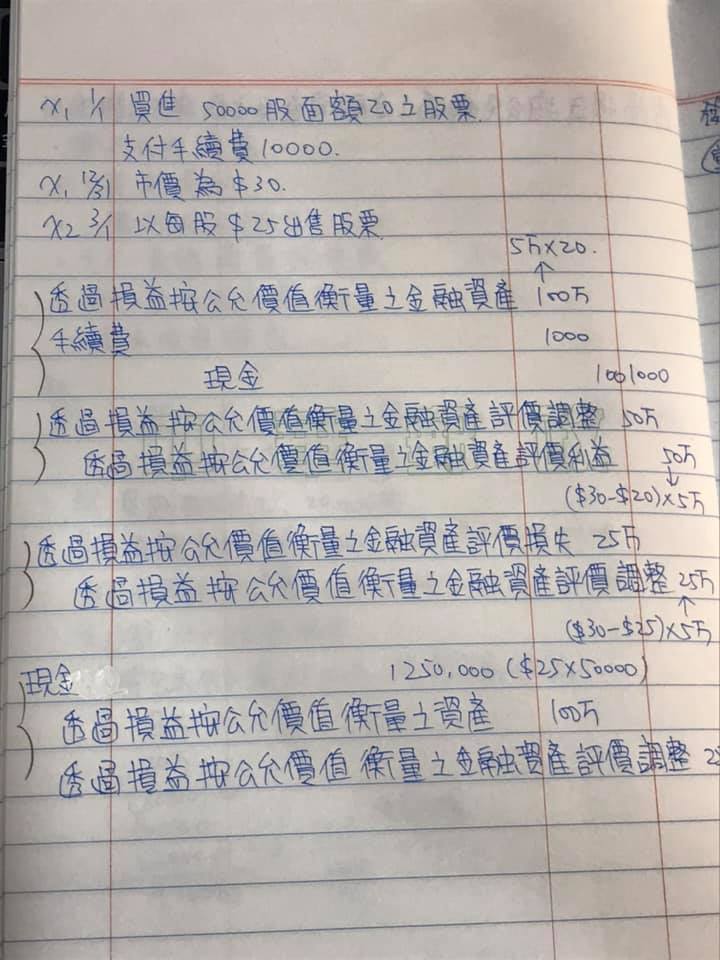 X1 1/1 買進 50000股面額20之股票.
支付手續費10000.
X1 12/31 市價為$30.
X2 3/1 以每股$25出售股票
5万×20.
透過損益按公允價值衡量之金融資產 100万
手續費 1000
現金 1001000
透過損益按公允價值衡量之金融資產評價調整 50万
透過損益按公允價值衡量之金融資產評價利益 50万
($30-$20)×5万
透過損益按公允價值衡量之金融資產評價損失 25万
透過損益按公允價值衡量之金融資產評價調整 25万
($30-$25)×5万
現金 1250,000 ($25×50000)
透過損益按公允價值衡量之資產 100万
透過損益按公允價值衡量之金融資產評價調整